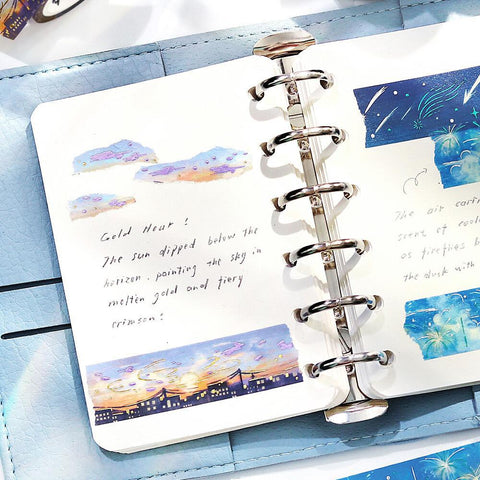 Gold Hour!
The sun dipped below the
horizon, painting the sky in
melten gold and fiery
crimson!
The air carin
scent of cool
as fireflies b
the dusk with